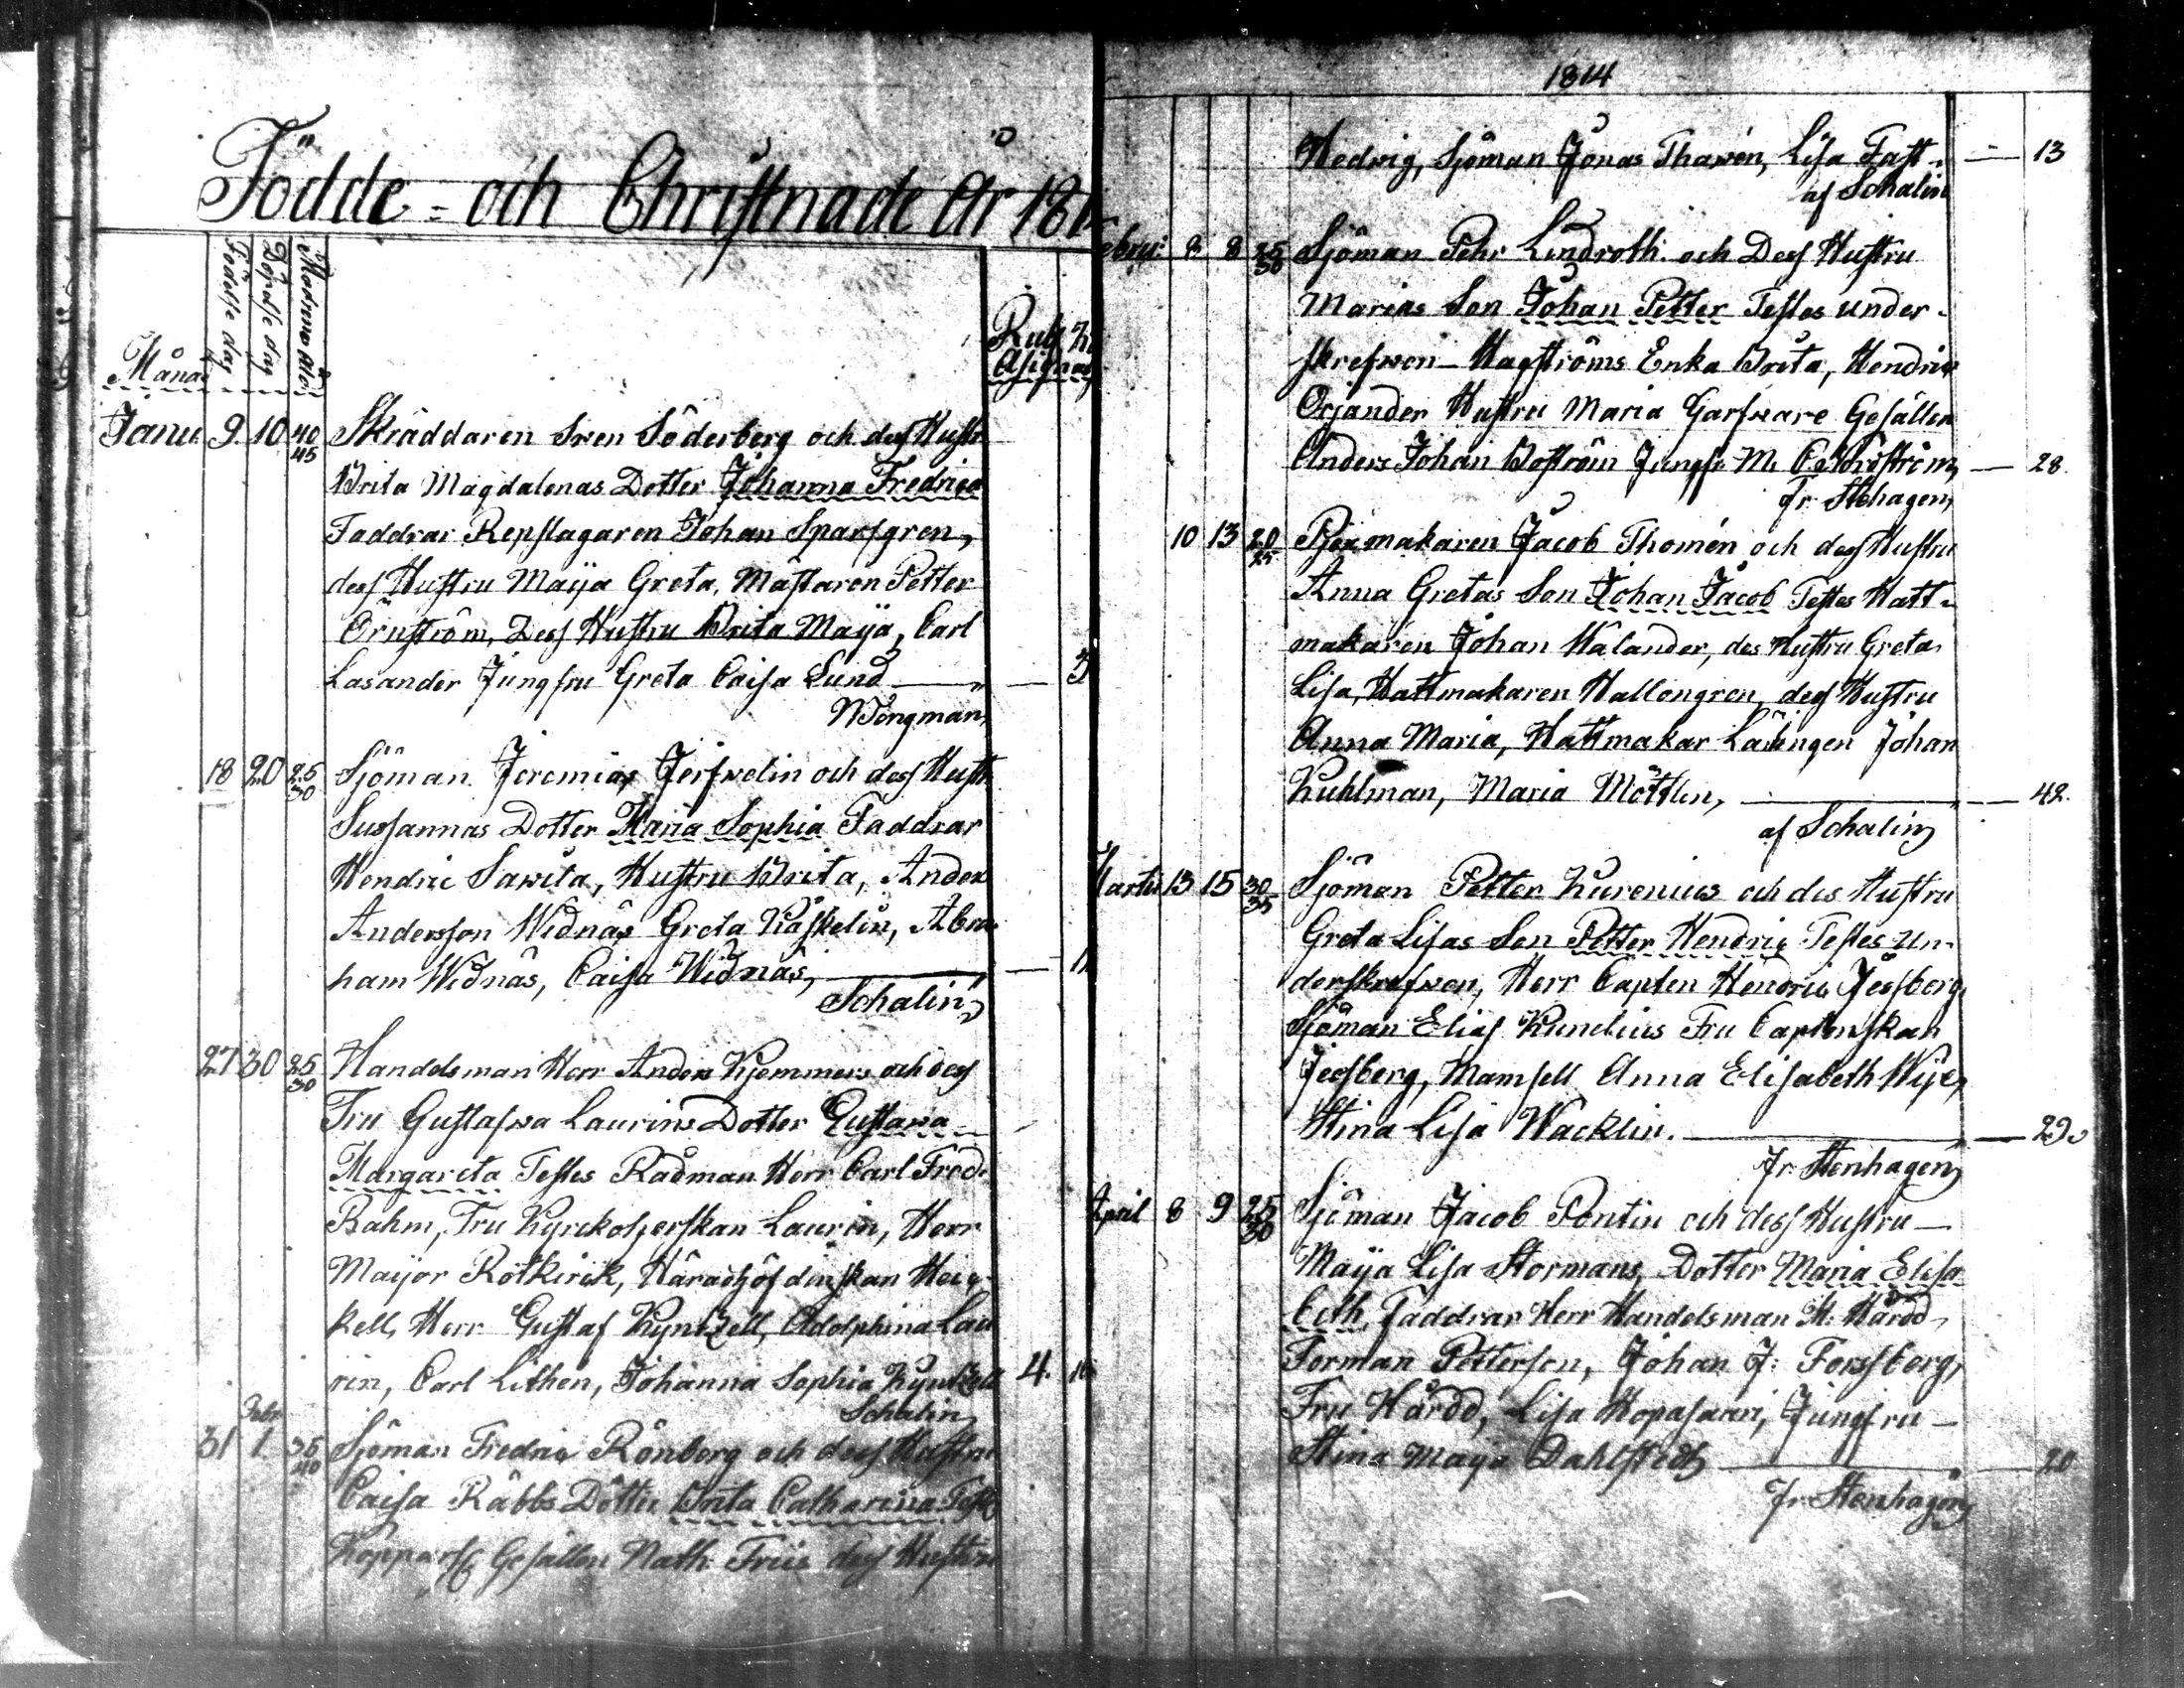 Födde = och Christnade År 181
Månad
Födelse dag
Döpelse dag
Modrens Ålder
Rub
Asignat
Janu. 9. 10 40 45 Skräddaren Swen Söderberg och dess Hustru
Brita Magdalenas Dotter Johanna Fredrica
Faddrar Repslagaren Johan Sparfgren,
dess Hustru Maija Greta, Mästaren Petter
Örnström, Dess Hustru Brita Maija, Carl
Lasander Jungfru Greta Caisa Lund
Tengman
18 20 25 30 Sjöman Jeremias Jerfwelin och dess Hustr
Sussannas Dotter Maria Sophia Faddrar
Hendric Sawila, Hustru Brita, Anders
Andersson Widnäs Greta Kaskelin, Abra
ham Widnäs, Caisa Widnäs,
Schalin
27 30 25 30 Handelsman Herr Anders Kjemmer och dess
Fru Gustafwa Laurins Dotter Gustava
Margareta Testes Rådman Herr Carl Fred.
Rahm, Fru Kyrckoherskan Laurin, Herr
Maijor Rotkirik, Häradshöfdinskan Hei
kell, Herr Gustaf Kyntzell, Adolphina Lau
rin, Carl Lithen, Johanna Sophia Kyntzell 4.
Schalin
Febr
31 1. 35 40 Sjöman Fredric Rönberg och dess Hustru
Caisa Räbbs Dotter Brita Catharina Test
Kopparsl Gesällen Nath: Friis dess Hustru
1814
Hedvig, Sjöman Jonas Thawén, Lisa Fast. — 13
af Schalin
Februi: 8 8 25 30 Sjöman Pehr Lindroth och Dess Hustru
Marias Son Johan Petter Testes under-
skrefwen — Hagströms Enka Brita, Hendric
Orjander Hustru Maria Garfware Gesällen
Anders Johan Boström Jungfr M. C. — 28.
Fr. Stehagen
10 13 20 25 Pjexmakaren Jacob Thomén och dess Hustru
Anna Gretas Son Johan Jacob Testes Hatt-
makaren Johan Wålander, des Hustru Greta
Lisa, Hattmakaren Hallongren, dess Hustru
Anna Maria, Hattmakar Lärlingen Johan
Kuhlman, Maria Möttlin, — 42.
af Schalin
Martii 13 15 30 35 Sjöman Petter Kurenius och des Hustru
Greta Lisas Son Petter Hendric Testes un-
derskrefwen, Herr Capten Hendric Jessberg
Sjöman Elias Kunelius Fru Captenskan
Jessberg, Mamsell Anna Elisabeth
Stina Lisa Wacklin. — 29.
Fr. Stenhagen
April 8 9 25 30 Sjöman Jacob Pontin och dess Hustru —
Maija Lisa Stormans, Dotter Maria Elisa
beth, Faddrar Herr Handelsman M. Hårdd,
Forman Petterson, Johan J: Forssberg,
Fru Hårdd, Lisa Kopasarri, Jungfru —
Stina Maija Dahlstedt — 20
Fr. Stenhagen